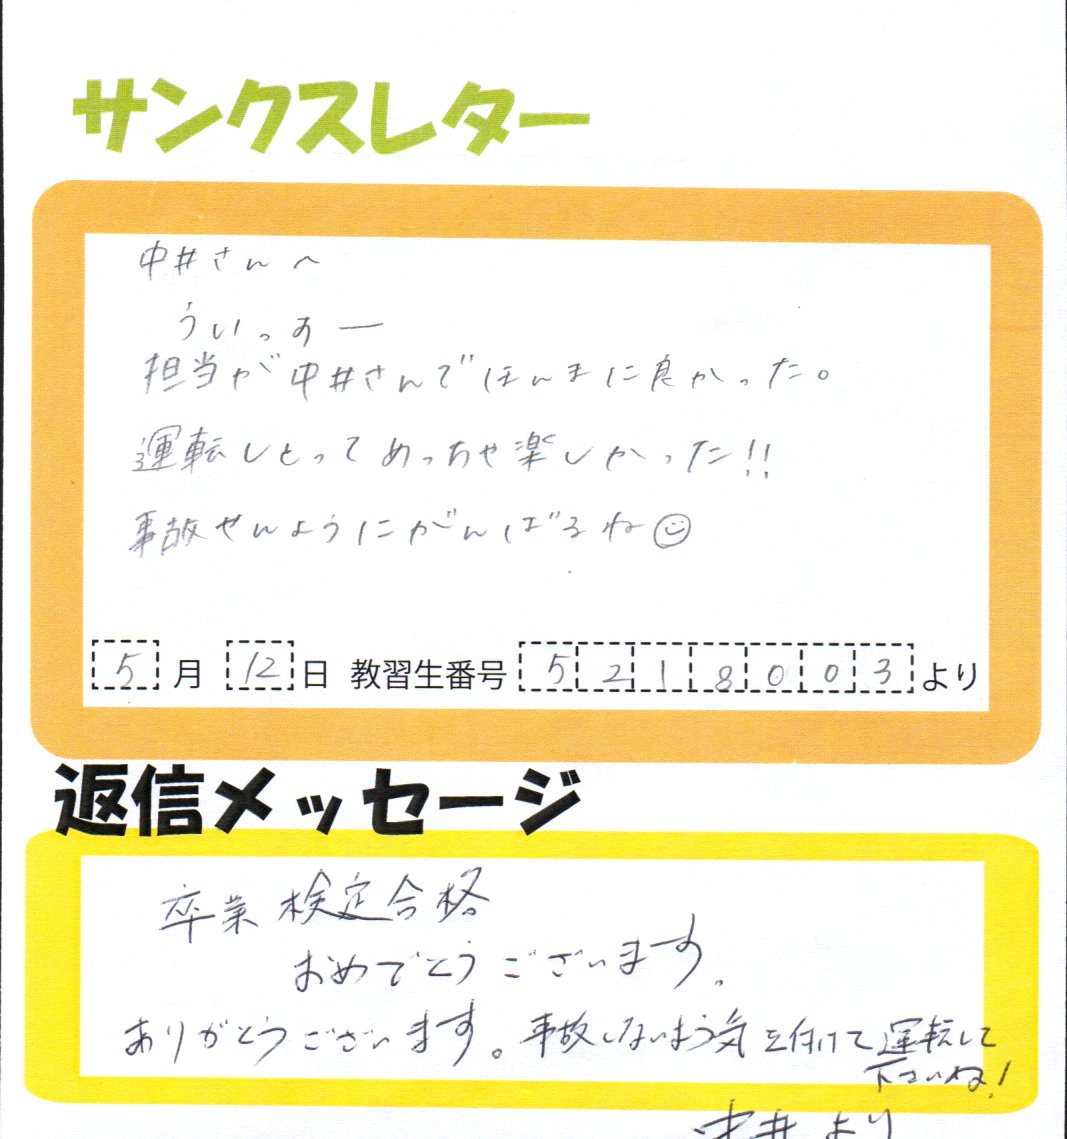 サンクスレター
中井さんへ
ういっすー
担当が中井さんでほんまに良かった。
運転しとってめっちゃ楽しかった!!
事故せんようにがんばるね☺
5月12日 教習生番号 5218003より
返信メッセージ
卒業検定合格
おめでとうございます。
ありがとうございます。事故しないよう気を付けて運転して
下さいね!
中井より